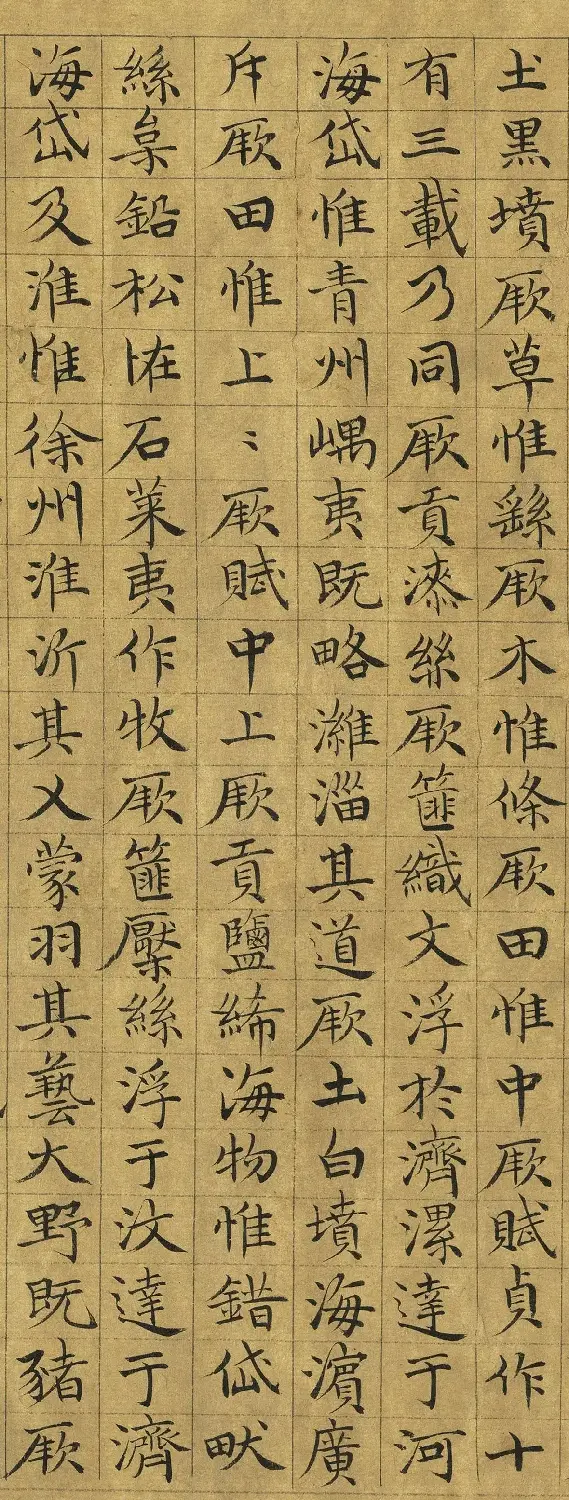 土黒墳厥草惟繇厥木惟條厥田惟中厥賦貞作十
有三載乃同厥貢漆絲厥篚織文浮於濟漯達于河
海岱惟青州嵎夷既略濰淄其道厥土白墳海濱廣
斥厥田惟上〻厥賦中上厥貢鹽絺海物惟錯岱畎
絲枲鉛松恠石萊夷作牧厥篚檿絲浮于汶達于濟
海岱及淮惟徐州淮沂其乂蒙羽其藝大野既豬厥